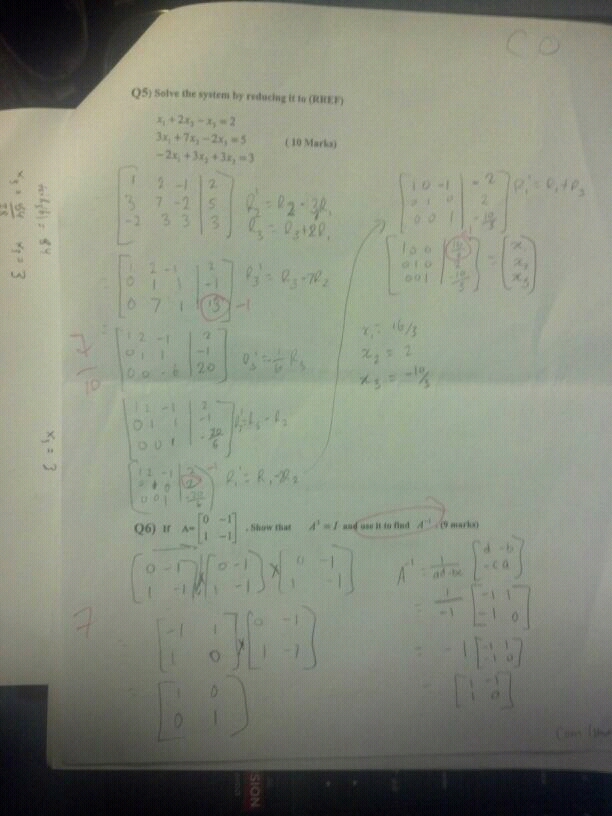 CO
Q5) Solve the system by reducing it to (RREF)
x₁ + 2x₂ - x₃ = 2
3x₁ + 7x₂ - 2x₃ = 5 (10 Marks)
-2x₁ + 3x₂ + 3x₃ = 3
1 2 -1 | 2
3 7 -2 | 5 R₂' = R₂ - 3R₁
-2 3 3 | 3 R₃' = R₃ + 2R₁
= 1 2 -1 | 2
0 1 1 | -1 R₃' = R₃ - 7R₂
0 7 1 | 13 -1
= 1 2 -1 | 2
0 1 1 | -1
0 0 -6 | 20
1 2 -1 | 2
0 1 1 | -1
0 0 1 | -20/6
1 2 -1 | 2 -1
0 1 0 | 2 R₁' = R₁ - 2R₂
0 0 1 | -20/6
1 0 -1 | -2 R₁' = R₁ + R₃
0 1 0 | 2
0 0 1 | -10/3
1 0 0
0 1 0
0 0 1 | -10/3 = x₁ x₂ x₃
x₁ = 16/3
x₂ = 2
x₃ = -10/3
7
10
x₃ = 3
x₃ = 3
Q6) If A= [0 -1
1 -1] . Show that A³ = I and use it to find A⁻¹. (9 marks)
[0 -1
1 -1] x [0 -1
1 -1] x [0 -1
1 -1]
= [-1 1
1 0] x [0 -1
1 -1]
= [1 0
0 1]
7
A⁻¹ = 1/ad-bc [d -b
-c a]
= 1/-1 [-1 1
-1 0]
= -1 [-1 1
-1 0]
= [1 -1
1 0]
SION